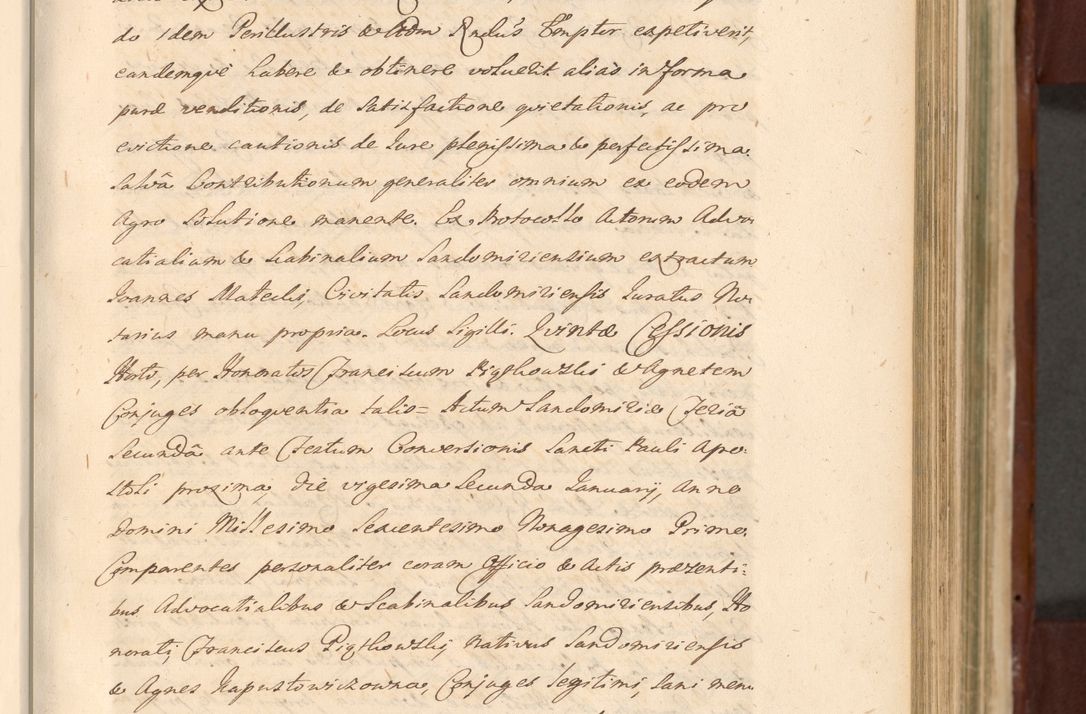 do idem Perillustris & Adm Rndus Emptor expetiverit,
eandemque habere & obtinere voluerit alias in forma
puræ venditionis, de satisfactione quietationis, ac pro
evictione cautionis de Iure plenissima & perfectissima.
Salvâ Contributionum generaliter omnium ex eodem
Agro solutione manente. Ex Protocollo Actorum Advo
catialium & Scabinalium Sandomiriensium extractum
Ioannes Matechi, Civitatis Sandomiriensis Iuratus No
tarius manu propria. Locus Sigilli. Quintæ Cessionis
Horti, per Honoratos Franciscum & Agnetem
Conjuges obloquentia talis= Actum Sandomiriæ Feriâ
Secundâ ante Festum Conversionis Sancti Pauli Apo:
stoli proxima, die vigesima secunda Ianuarij, anno
Domini Millesimo Sexcentesimo Nonagesimo Primo.
Comparentes personaliter coram Officio & Actis præzenti:
bus Advocatialibus & Scabinalibus Sandomiriensibus, Ho
norati, Franciscus nativus Sandomiriensis
& Agnes Kapustowiczowna, Conjuges legitimi, sani men